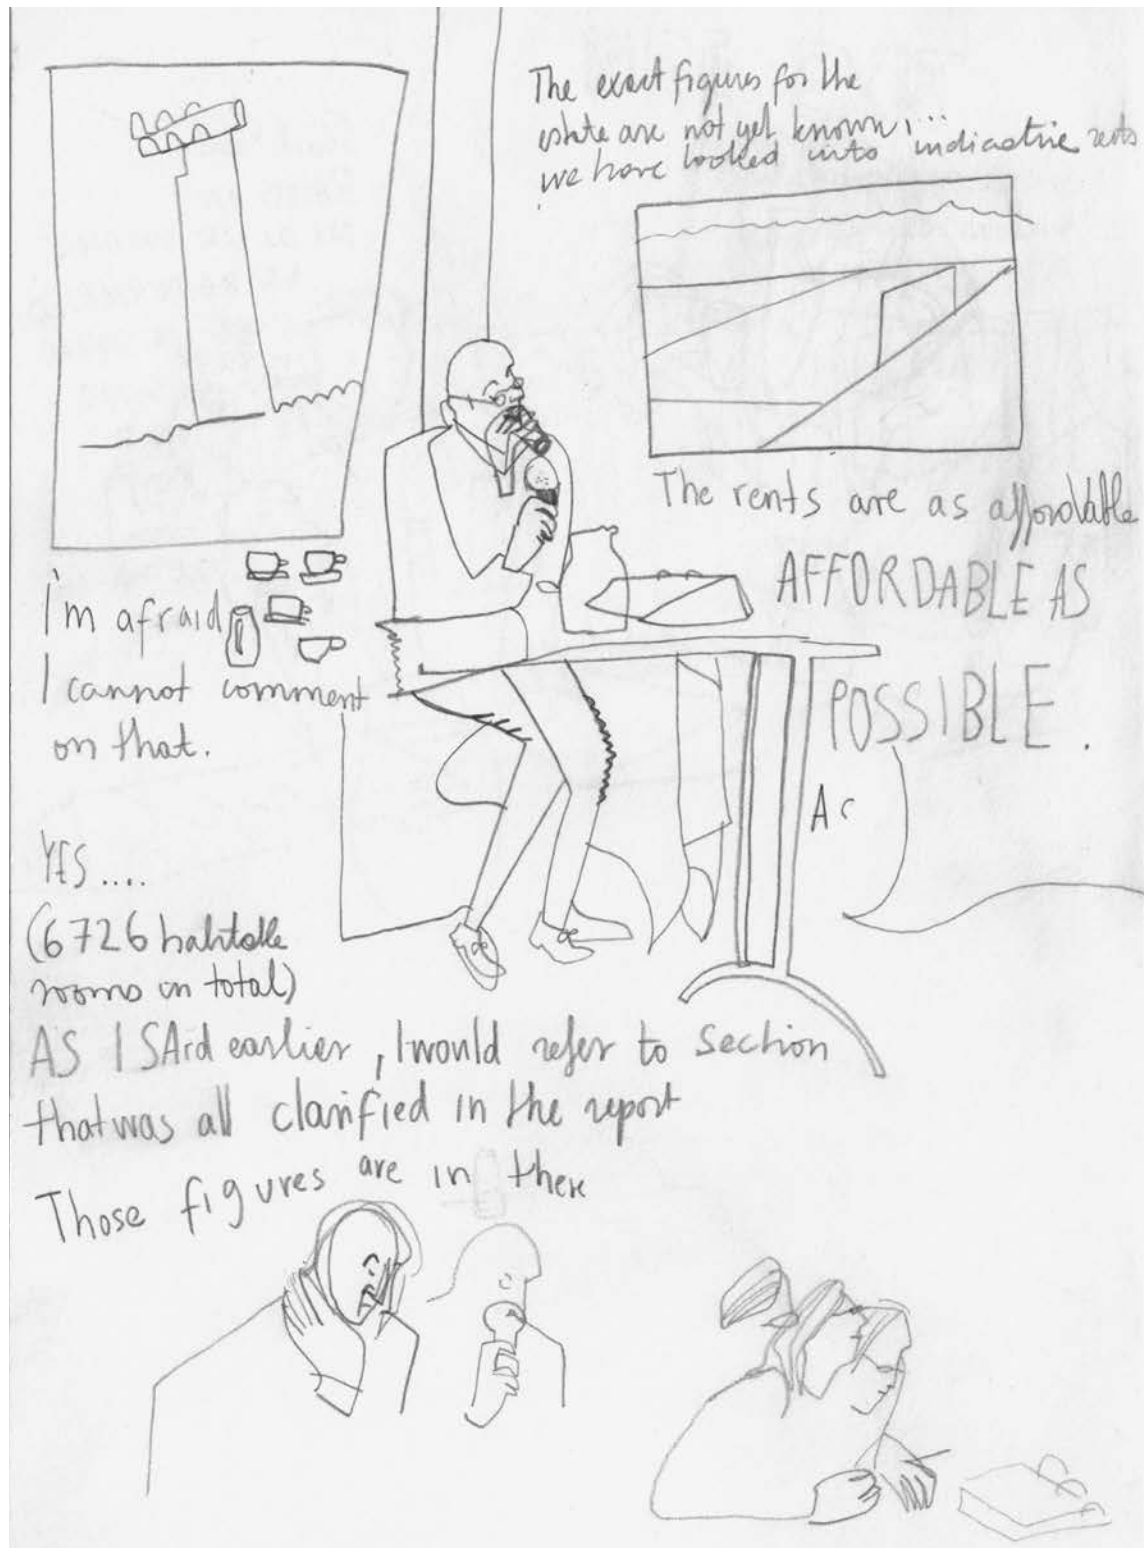 The exact figures for the
estate are not yet known,...
we have looked into indicative rents
The rents are as affordable
AFFORDABLE AS
POSSIBLE.
As
I'm afraid
I cannot comment
on that.
YES....
(6726 habitable
rooms in total)
AS I SAid earlier, I would refer to section
that was all clarified in the report
Those figures are in there